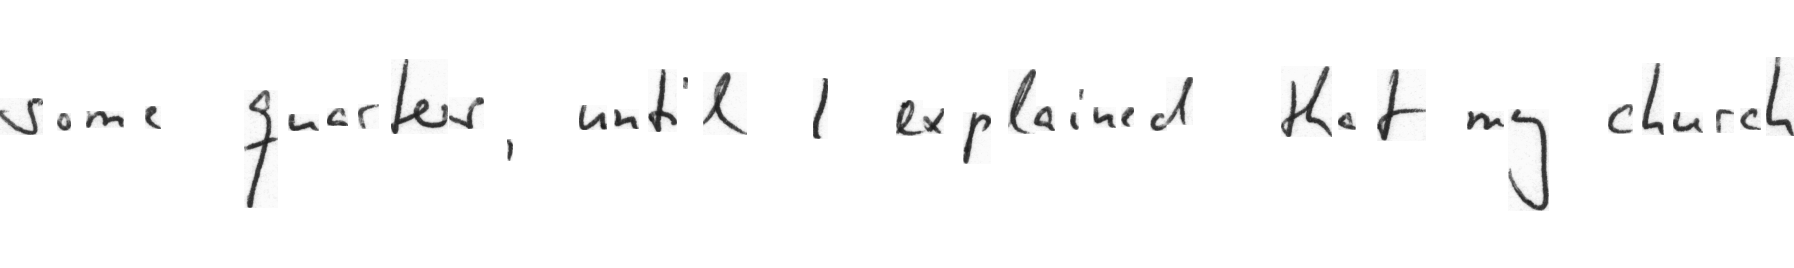 some quarters, until I explained that my church